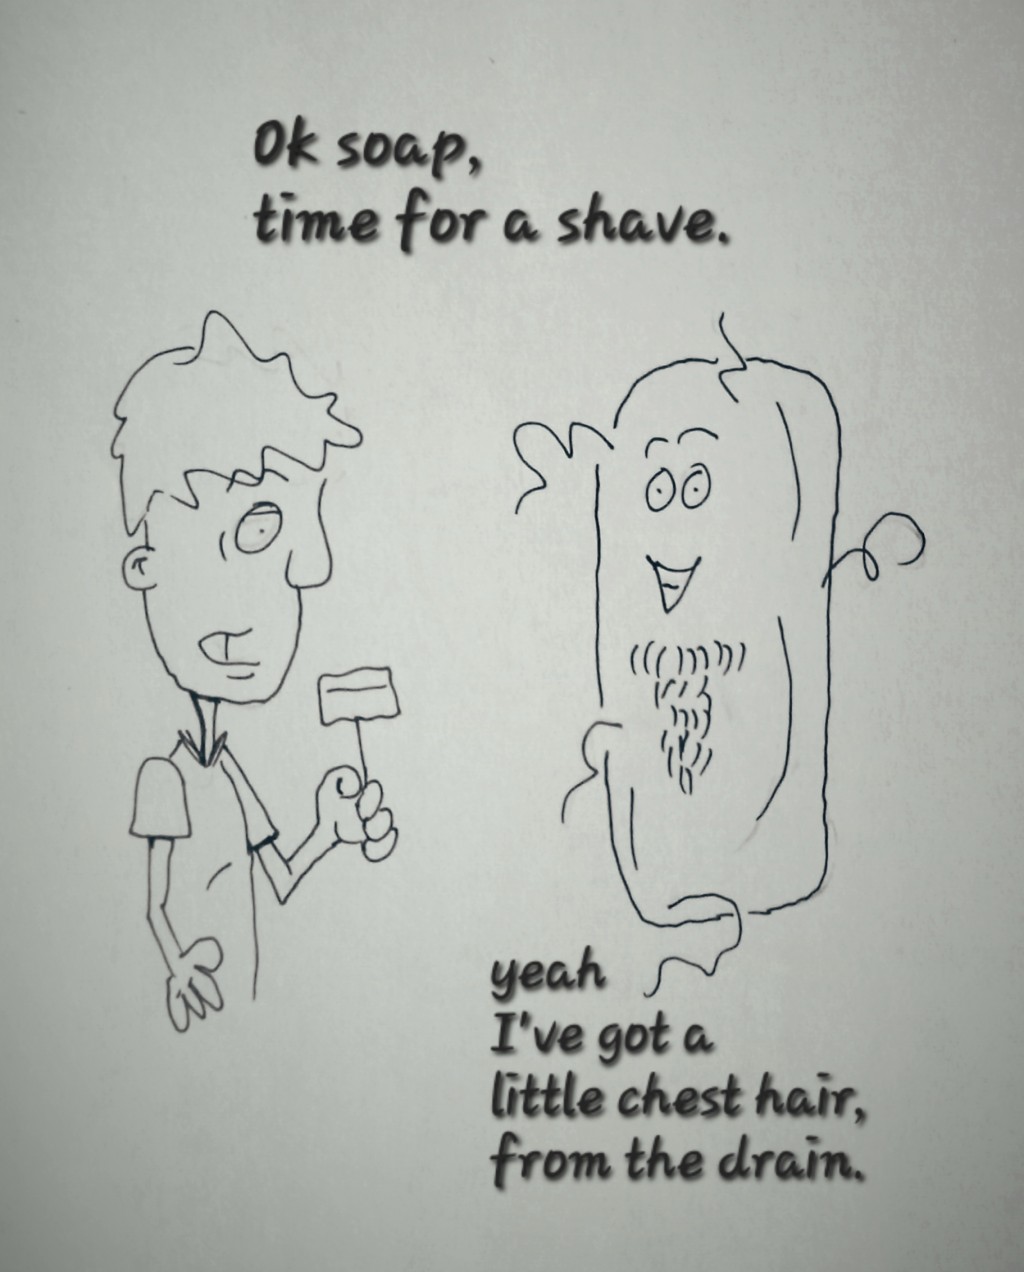 Ok soap,
time for a shave.
yeah
I've got a
little chest hair,
from the drain.